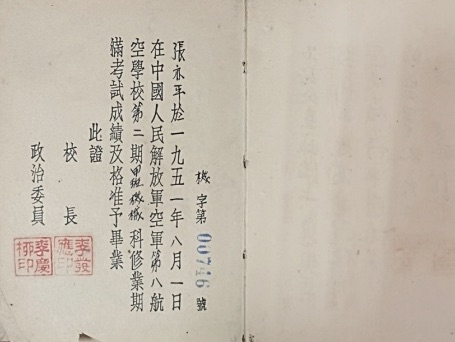 機字第00746號
張永年於一九五一年八月一日
在中國人民解放軍空軍第八航
空學校第二期甲班機械科修業期
滿考試成績及格准予畢業
此證
校長
李發應印
政治委員
李慶印